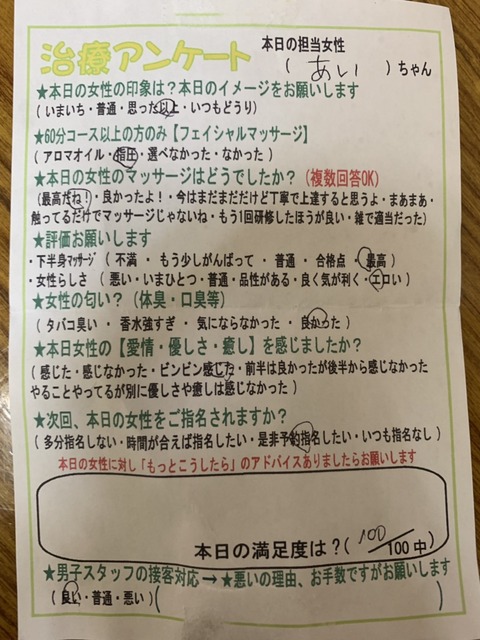 治療アンケート
本日の担当女性
( あい )ちゃん
★本日の女性の印象は？本日のイメージをお願いします
(いまいち・普通・思った以上・いつもどうり)
★60分コース以上の方のみ【フェイシャルマッサージ】
(アロマオイル・指圧・選べなかった・なかった)
★本日の女性のマッサージはどうでしたか？(複数回答OK)
(最高だね！・良かったよ！・今はまだまだだけど丁寧で上達すると思うよ・まあまあ・
触ってるだけでマッサージじゃないね・もう1回研修したほうが良い・雑で適当だった)
★評価お願いします
・下半身マッサージ(不満・もう少しがんばって・普通・合格点・最高)
・女性らしさ(悪い・いまひとつ・普通・品性がある・良く気が利く・エロい)
★女性の匂い？(体臭・口臭等)
(タバコ臭い・香水強すぎ・気にならなかった・良かった)
★本日女性の【愛情・優しさ・癒し】を感じましたか？
(感じた・感じなかった・ビンビン感じた・前半は良かったが後半から感じなかった
やることやってるが別に優しさや癒しは感じなかった)
★次回、本日の女性をご指名されますか？
(多分指名しない・時間が合えば指名したい・是非予約指名したい・いつも指名なし)
本日の女性に対し「もっとこうしたら」のアドバイスありましたらお願いします
本日の満足度は？(100/100中)
★男子スタッフの接客対応→★悪いの理由、お手数ですがお願いします
(良い・普通・悪い)( )